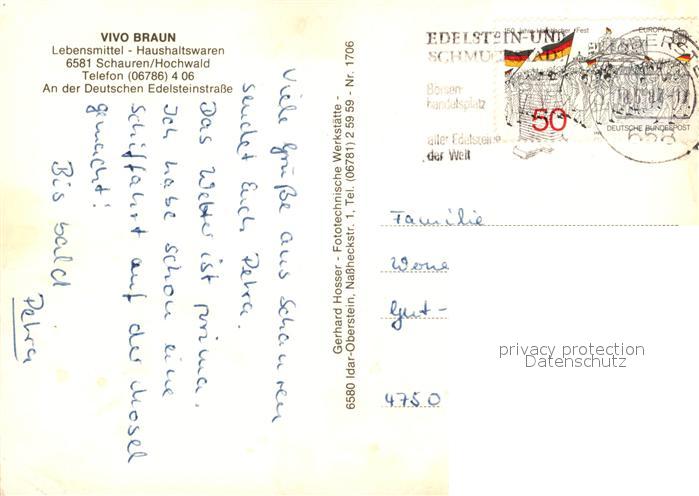 VIVO BRAUN
Lebensmittel - Haushaltswaren
6581 Schauren/Hochwald
Telefon (06786) 4 06
An der Deutschen Edelsteinstraße
Viele Grüße aus Schauren
sendet Euch Petra.
Das Wetter ist prima.
Ich habe schon eine
Schiffahrt auf der Mosel
gemacht!
Bis bald
Petra
Gerhard Hosser - Fototechnische Werkstätte -
6580 Idar-Oberstein, Naßheckstr. 1, Tel. (06781) 2 59 59 - Nr. 1706
EDELSTEIN-UND
SCHMUCKSTADT
Börsen-
handelsplatz
aller Edelsteine
der Welt
150 Jahre Hambacher Fest
EUROPA
50
DEUTSCHE BUNDESPOST
Familie
Werne
Gut-
4750
privacy protection
Datenschutz